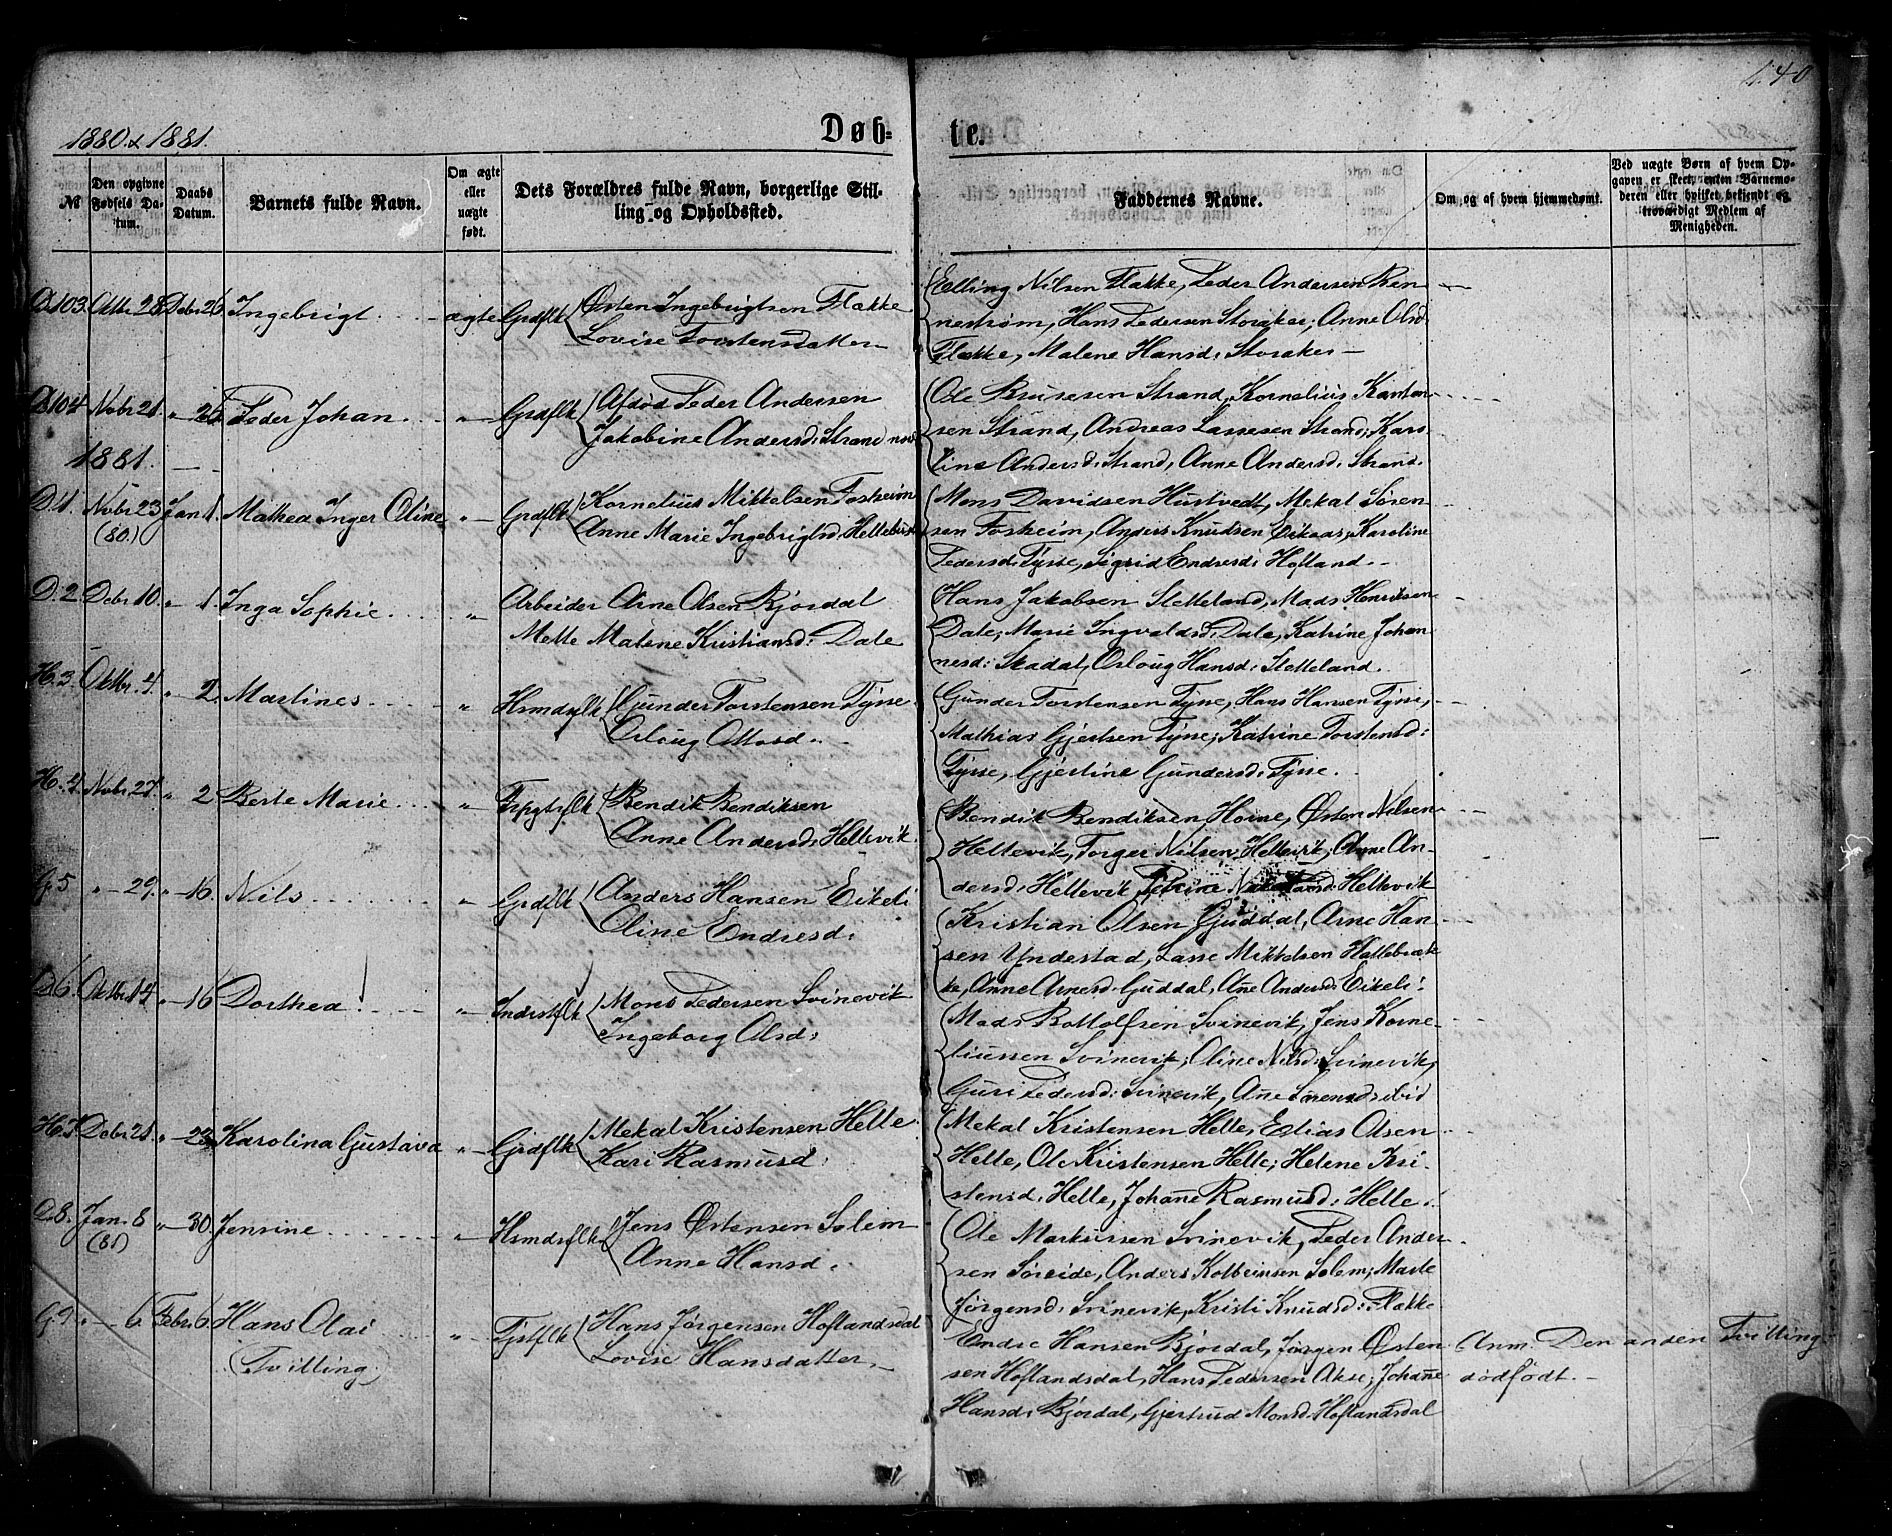 140
1880 & 1881.
Døb-
te.
№
Den opgivne Fødsels Datum.
Daabs Datum.
Barnets fulde Navn.
Om ægte eller uægte født.
Dets Forældres fulde Navn, borgerlige Stilling og Opholdssted.
Faddernes Navne.
Om og af hvem hjemmedøbt.
Ved uægte Børn af hvem Opgaven er skeet, enten Barnemoderen eller hvilket bekjendt og troværdigt Medlem af Menigheden.
D 103. Oktbr 28 Debr 26 Ingebrigt ægte Grdflk Østen Ingebrigtsen Flække
Lovise Torstensdatter
Elling Nilsen Flække, Peder Andersen Ren-
nestrøm, Hans Pedersen Storaker; Anne Olsd
Flække, Malene Hansd: Storaker
D 104 Nobr 21. " 26 Peder Johan " Grdflk Afdød Peder Andersen
Jakobine Andersd: Strand
Ole Brusesen Strand, Kornelius
sen Strand, Andreas Lassesen Strand; Karo-
line Andersd: Strand, Anne Andersd: Strand.
1881.
D 1. Nobr 23 (80.) Jan 1. Mathea Inger Oline " Grdflk Kornelius Mikkelsen Fosheim
Anne Marie Ingebrigtsd:
Mons Davidsen Hustvedt, Mekal Søren-
sen Fosheim, Anders Knudsen Eikaas; Karoline
Pedersd: Tysse, Sigrid Endresd: Hofland.
D. 2. Debr 10. " 1. Inga Sophie " Arbeider Arne Olsen Bjørdal
Mette Malene Kristiansd: Dale
Hans Jakobsen Sletteland, Mads Henriksen
Dale; Marie Ingvaldsd: Dale, Katrine Johan-
nesd: Skadal, Osloug Hansd: Sletteland.
H. 3. Oktbr. 4. " 2. Martines " Hsmdsflk Gunder Torstensen Tysse
Osloug Olsd.
Gunder Torstensen Tysse, Hans Hansen Tysse,
Mathias Gjertsen Tysse; Katrine Torstensd:
Tysse, Gjertine Gundersd: Tysse.
H. 4. Nobr. 27. " 2 Berte Marie " Bendik Bendiksen
Anne Andersd: Hellevik.
Bendik Bendiksen Hovne, Østen Nilsen
Hellevik, Torger Nilsen Hellevik; Anne An-
dersd: Hellevik, Hellevik
G. 5 " 29. " 16. Nils " Grdflk Anders Hansen Eikeli
Oline Endresd:
Kristian Olsen Guddal, Arne Han-
sen Yndestad, Lasse Mikkelsen Hallebræk-
ke, Anne Arnesd: Guddal, Ane Andersd: Eikeli.
D 6. Oktbr 14. " 16 Dorthea! " Indrstflk Mons Pedersen Svinevik
Ingeborg Olsd:
Mads Bottolfsen Svinevik, Jens Korne-
liussen Svinevik; Oline Nilsd: Svinevik,
Guri Pedersd: Svinevik, Ane Sørensd: ibid
H. 7 Debr 21. " 23. Karolina Gustava " Grdflk Mekal Kristensen Helle
Kari Rasmusd:
Mekal Kristensen Helle, Elias Olsen
Helle, Ole Kristensen Helle; Helene Kri-
stensd: Helle, Johanne Rasmusd: Helle.
D. 8. Jan. 8 (81) " 30. Jensine " Hsmdsflk Jens Østensen Solem
Anne Hansd.
Ole Markussen Svinevik, Peder Ander-
sen Søreide, Anders Kolbeinsen Solem; Marte
Jørgensd: Svinevik, Kristi Knudsd: Flække
G. 9. " 6 Febr. 6. Hans Olai " Tjstflk Hans Jørgensen Hoflandsdal
(Tvilling) Lovise Hansdatter
Endre Hansen Bjørdal, Jørgen Østen-
sen Hoflandsdal, Hans Pedersen Akse; Johanne
Hansd: Bjørdal, Gjertrud Monsd: Hoflandsdal
Anm. Den anden Tvilling
dødfødt.